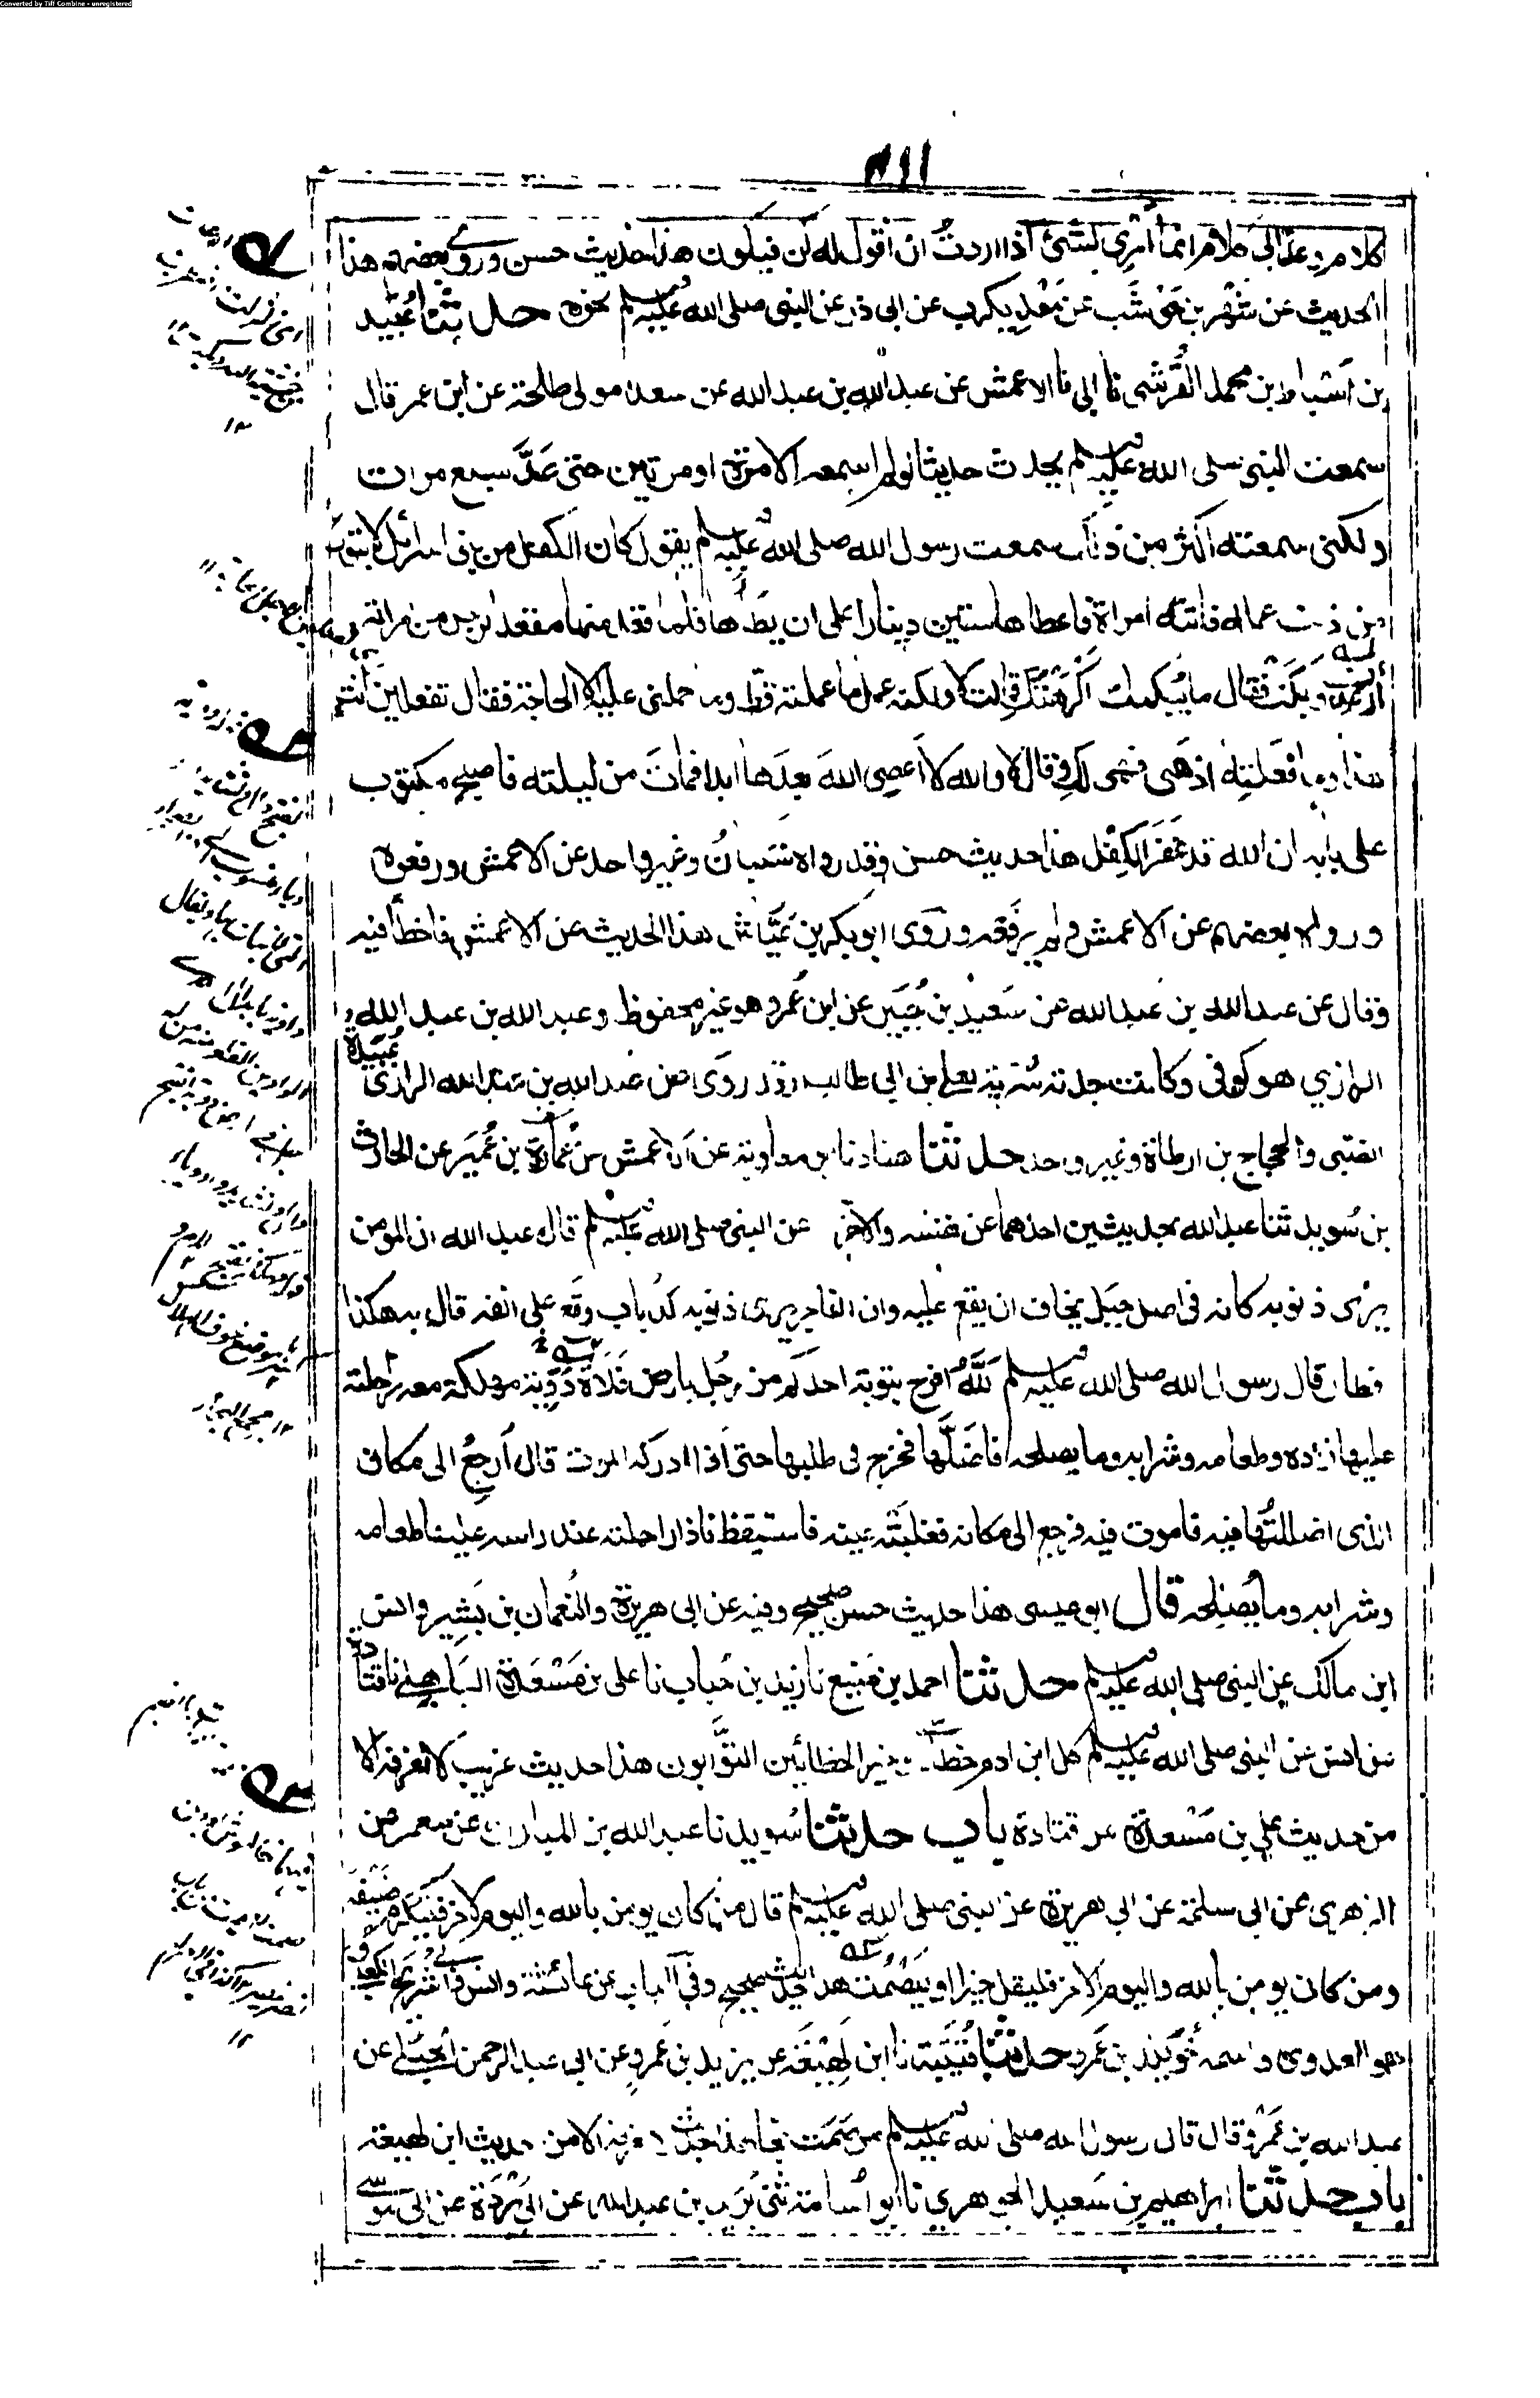 Converted by Tiff Combine - unregistered
٣١١
كلام وعذابي كلام انما امري لشئ اذا اردت ان اقول له كن فيكون هذا حديث حسن وروى بعضهم هذا
الحديث عن شهر بن حوشب عن معديكرب عن ابي ذر عن النبي صلى الله عليه وسلم نحوه حدثنا عبيد
بن اسباط بن محمد القرشي نا ابي نا الاعمش عن عبد الله بن عبد الله عن سعد مولى طلحة عن ابن عمر قال
سمعت النبي صلى الله عليه وسلم يحدث حديثا لولم اسمعه الا مرة او مرتين حتى عدّ سبع مرات
ولكني سمعته اكثر من ذلك سمعت رسول الله صلى الله عليه وسلم يقول كان الكفل من بني اسرائيل لا يتورع
من ذنب عمله فاتته امراة فاعطاها ستين دينارا على ان يطأها فلما قعد منها مقعد الرجل من امراته
أرعدت وبكت فقال ما يبكيك أكرهتك قالت لا ولكنه عمل ما عملته قط وما حملني عليه الا الحاجة فقال تفعلين انت
هذا وما فعلته اذهبي فهي لك وقال لا والله لا أعصي الله بعدها ابدا فمات من ليلته فاصبح مكتوب
على بابه ان الله قد غفر الكفل هذا حديث حسن وقد رواه شيبان وغير واحد عن الاعمش ورفعوه
ورواه بعضهم عن الاعمش ولم يرفعه وروى ابو بكر بن عياش هذا الحديث عن الاعمش فاخطأ فيه
وقال عن عبد الله بن عبد الله عن سعيد بن جبير عن ابن عمر وهو غير محفوظ وعبد الله بن عبد الله
الرازي هو كوفي وكانت جدته سرية لعلي بن ابي طالب وقد روى عن عبد الله بن عبد الله الرازي عبيدة
الضبي والحجاج بن ارطاة وغير واحد حدثنا هناد نا ابو معاوية عن الاعمش عن عمارة بن عمير عن الحارث
بن سويد ثنا عبد الله بحديثين احدهما عن نفسه والاخر عن النبي صلى الله عليه وسلم قال عبد الله ان المومن
يرى ذنوبه كانه في اصل جبل يخاف ان يقع عليه وان الفاجر يرى ذنوبه كذباب وقع على انفه قال به هكذا
فطار قال رسول الله صلى الله عليه وسلم لله افرح بتوبة احدكم من رجل بارض فلاة دوية مهلكة معه راحلته
عليها زاده وطعامه وشرابه وما يصلحه فاضلّها فخرج في طلبها حتى اذا ادركه الموت قال أرجع الى مكاني
الذي اضللتُها فيه فاموت فيه فرجع الى مكانه فغلبته عينه فاستيقظ فاذا راحلته عند راسه عليها طعامه
وشرابه وما يصلحه قال ابو عيسى هذا حديث حسن صحيح وفيه عن ابي هريرة والنعمان بن بشير وانس
ابن مالك عن النبي صلى الله عليه وسلم حدثنا احمد بن منيع نا زيد بن حباب نا علي بن مسعدة الباهلي نا قتادة
عن انس عن النبي صلى الله عليه وسلم كل ابن ادم خطاء وخير الخطائين التوّابون هذا حديث غريب لا نعرفه الا
من حديث علي بن مسعدة عن قتادة باب حدثنا سويد نا عبد الله بن المبارك عن معمر عن
الزهري عن ابي سلمة عن ابي هريرة عن النبي صلى الله عليه وسلم قال من كان يومن بالله واليوم الاخر فليكرم ضيفه
ومن كان يومن بالله واليوم الاخر فليقل خيرا او ليصمت هذا حديث صحيح وفي الباب عن عائشة وانس وابي شريح الكعبي
وهو العدوي واسمه خويلد بن عمرو حدثنا قتيبة نا ابن لهيعة عن يزيد بن عمرو عن ابي عبد الرحمن الحبلي عن
عبد الله بن عمرو قال قال رسول الله صلى الله عليه وسلم من صمت نجا هذا حديث لا نعرفه الا من حديث ابن لهيعة
باب حدثنا ابراهيم بن سعيد الجوهري نا ابو أسامة ثني بريد بن عبد الله عن ابي بردة عن ابي موسى